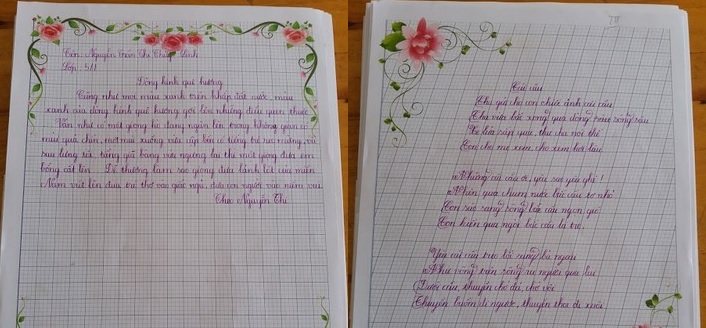 Tên: Nguyễn Trần Thị Thùy Linh
Lớp: 5/1
Dòng kinh quê hương
Cũng như mọi màu xanh trên khắp đất nước, màu
xanh của dòng kinh quê hương gợi lên những điều quen thuộc
Vẫn như có một giọng hò đang ngân lên trong không gian có
mùi quả chín, một mái xuồng vừa cập bến có tiếng trẻ reo mừng, và
sau lưng tôi, tiếng giã bàng mới ngưng lại thì một giọng đưa em
bỗng cất lên Dễ thương làm sao giọng đưa lảnh lót của miền
Nam vút lên đưa trẻ thơ vào giấc ngủ, đưa con người vào niềm vui
Theo Nguyễn Thi
Cái cầu
Cha gửi cho con chiếc ảnh cái cầu
Cha vừa bắc xong qua dòng sông sâu
Xe lửa sắp qua, thư cha nói thế
Con cho mẹ xem, cho xem hơi lâu
Những cái cầu ơi, yêu sao yêu ghê!
Nhện qua chum nước bắc cầu tơ nhỏ
Con sáo sang sông bắc cầu ngọn gió
Con kiến qua ngòi bắc cầu lá tre.
Yêu cái cầu treo lối sang bà ngoại
Như võng trên sông ru người qua lại
Dưới cầu, thuyền chở đá, chở vôi
Thuyền buồm đi ngược, thuyền thoi đi xuôi